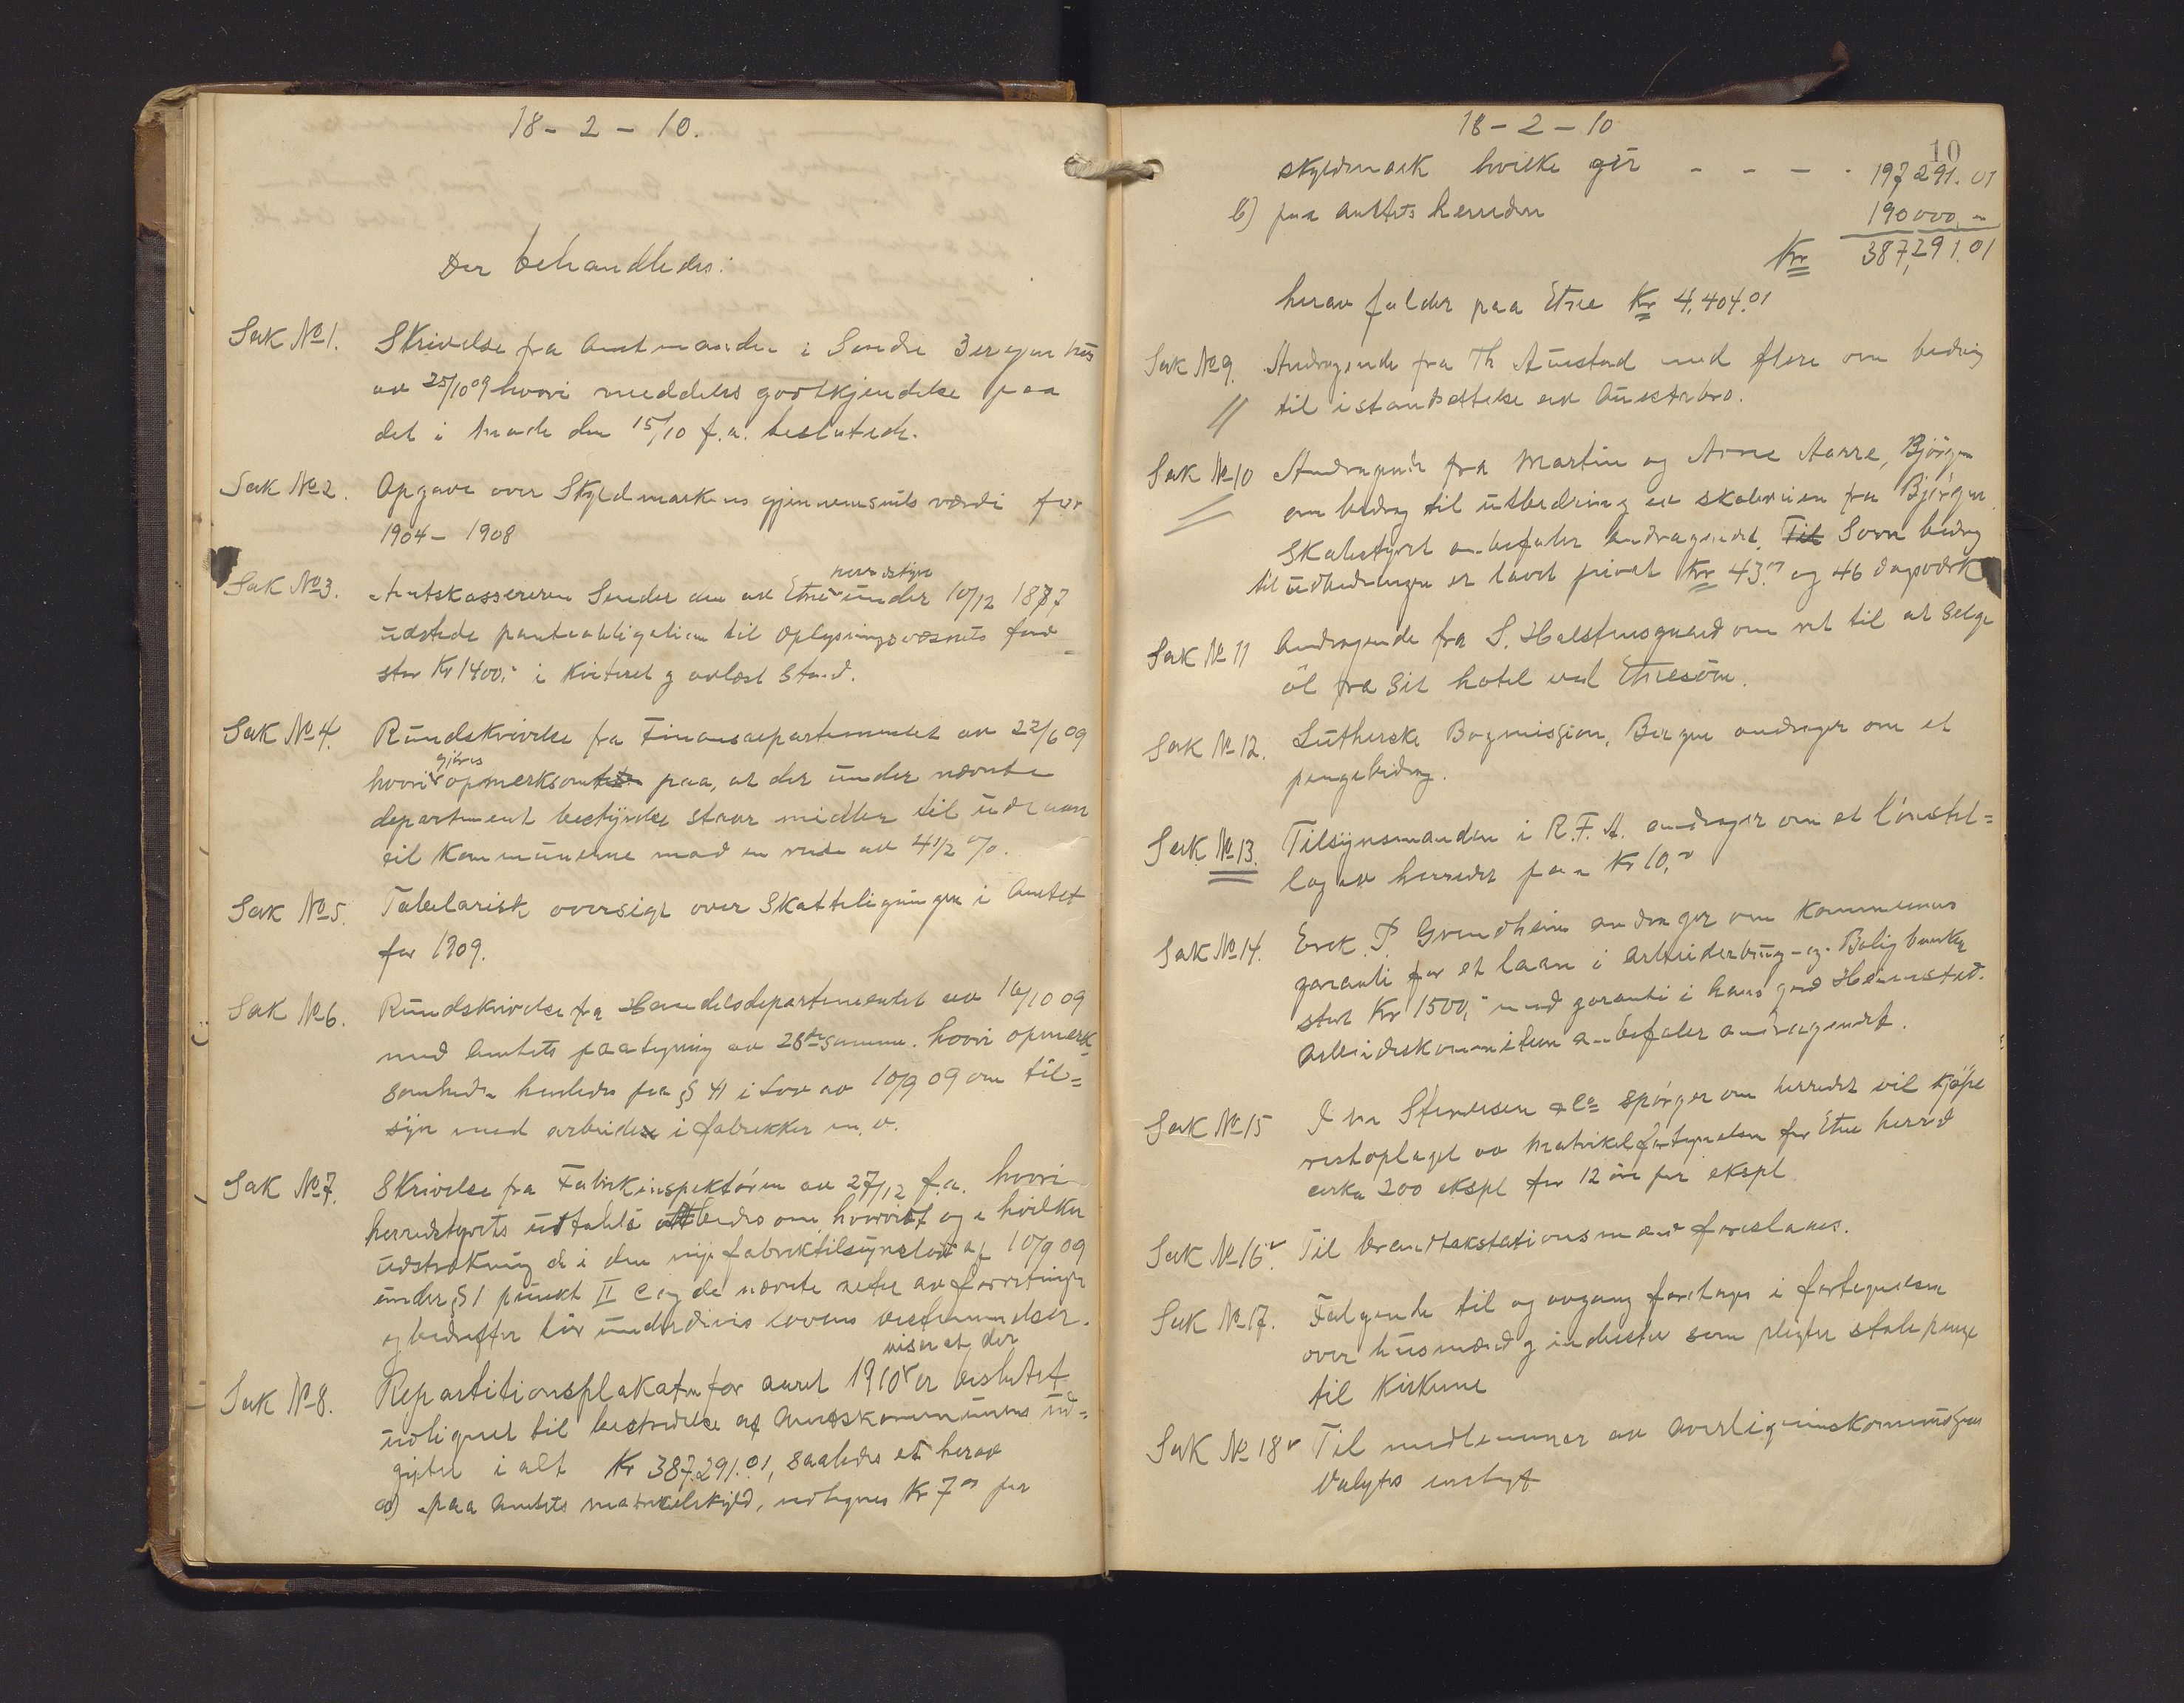 18 - 2 - 10.
Der behandledes:
Sak No 1. Skrivelse fra Amtmanden i Søndre Bergenhus
av 25/10 09 hvori meddeles godtkjendelse paa
det i møde den 15/10 f.a. besluttede.
Sak No 2. Opgave over Skyldmarkens gjennemsnits værdi for
1904 - 1908
Sak No 3. Amtskassereren Sender den av Etne herredstyre under 10/12 1887
udstede panteobligation til Oplysningsvæsnets fond
stor Kr 1400,- i kviteret og avlæst Stand.
Sak No 4. Rundskrivelse fra Finansdepartementet av 22/6 09
hvori gjøres opmerksom paa, at der under nævnte
departement bestyrelse staar midler til udlaan
til Kommunerne mod en rente av 4 1/2 %.
Sak No 5. Tabelarisk oversigt over Skatteligningen i Amtet
for 1909.
Sak No 6. Rundskrivelse fra Handelsdepartementet av 16/10 09
med Amtets paategning av 28de samme. hvori opmerk-
somheden henledes paa § 41 i Lov av 10/9 09 om til=
syn med arbeide i fabrikker m.v.
Sak No 7. Skrivelse fra Fabrikinspektøren av 27/12 f.a. hvori
herredstyrets udtalelse utbedes om hvorvidt og i hvilken
udstrækning de i den nye fabriktilsynslov af 10/9 09
under § 1 punkt II e og de nævnte arter av forretninger
og bedrifter bør underdives lovens bestemmelser.
Sak No 8. Repartitionsplakaten for aaret 1910 viser at der er besluttet
udlignet til bestridelse af Amtskommunens ud-
gifter i alt Kr 387.291.01, saaledes at herav
a) paa Amtets matrikelskyld, udlignes Kr 7 00 per
18 - 2 - 10
10
skyldmark hvilke gør - - - - 197,291.01
b) paa Amtets herreder 190000,-
Kr 387,291.01
herav falder paa Etne Kr 4.404.01
Sak No 9. Andragende fra Th Austad med flere om bedrag
til istandsettelse av Austrebro.
Sak No 10 Andragende fra Martin og Arne Aarre, Bjørgen
om bedrag til utbedring av skoleveien fra Bjørgen.
Skolestyret anbefaler andragendet. Til Som bedrag
til udbedringen er lovet privat Kr 43.00 og 46 dagsværk
Sak No 11 Andragende fra S. Halstensgaard om ret til at selge
øl fra sit hotel ved Etnesøen.
Sak No 12. Lutherske Bogmission, Bergen andrager om et
pengebidrag.
Sak No 13. Tilsynsmanden i R.F.A. andrager om et lønstil=
læg av herredet paa Kr 10,-
Sak No 14. Erik P Grindheim andrager om kommunens
garanti for et laan i Arbeiderbrug- og Boligbanken
stort Kr 1500,- med garanti i hans gård Heimstad.
Arbeiderkommiteen anbefaler andragendet.
Sak No 15 Stenersen & Co spørger om herredet vil kjøpe
restoplaget av Matrikelfortegnelsen for Etne herred
cirka 200 ekspl for 12 øre per ekspl.
Sak No 16. Til brandtakstationsmænd foreslaaes.
Sak No 17. Følgende til og avgang foretages i fortegnelsen
over husmænd og inderster som pligter stole penge
til Kirkerne
Sak No 18 Til medlemmer av Overligningskommisjonen
Valgtes enstemt